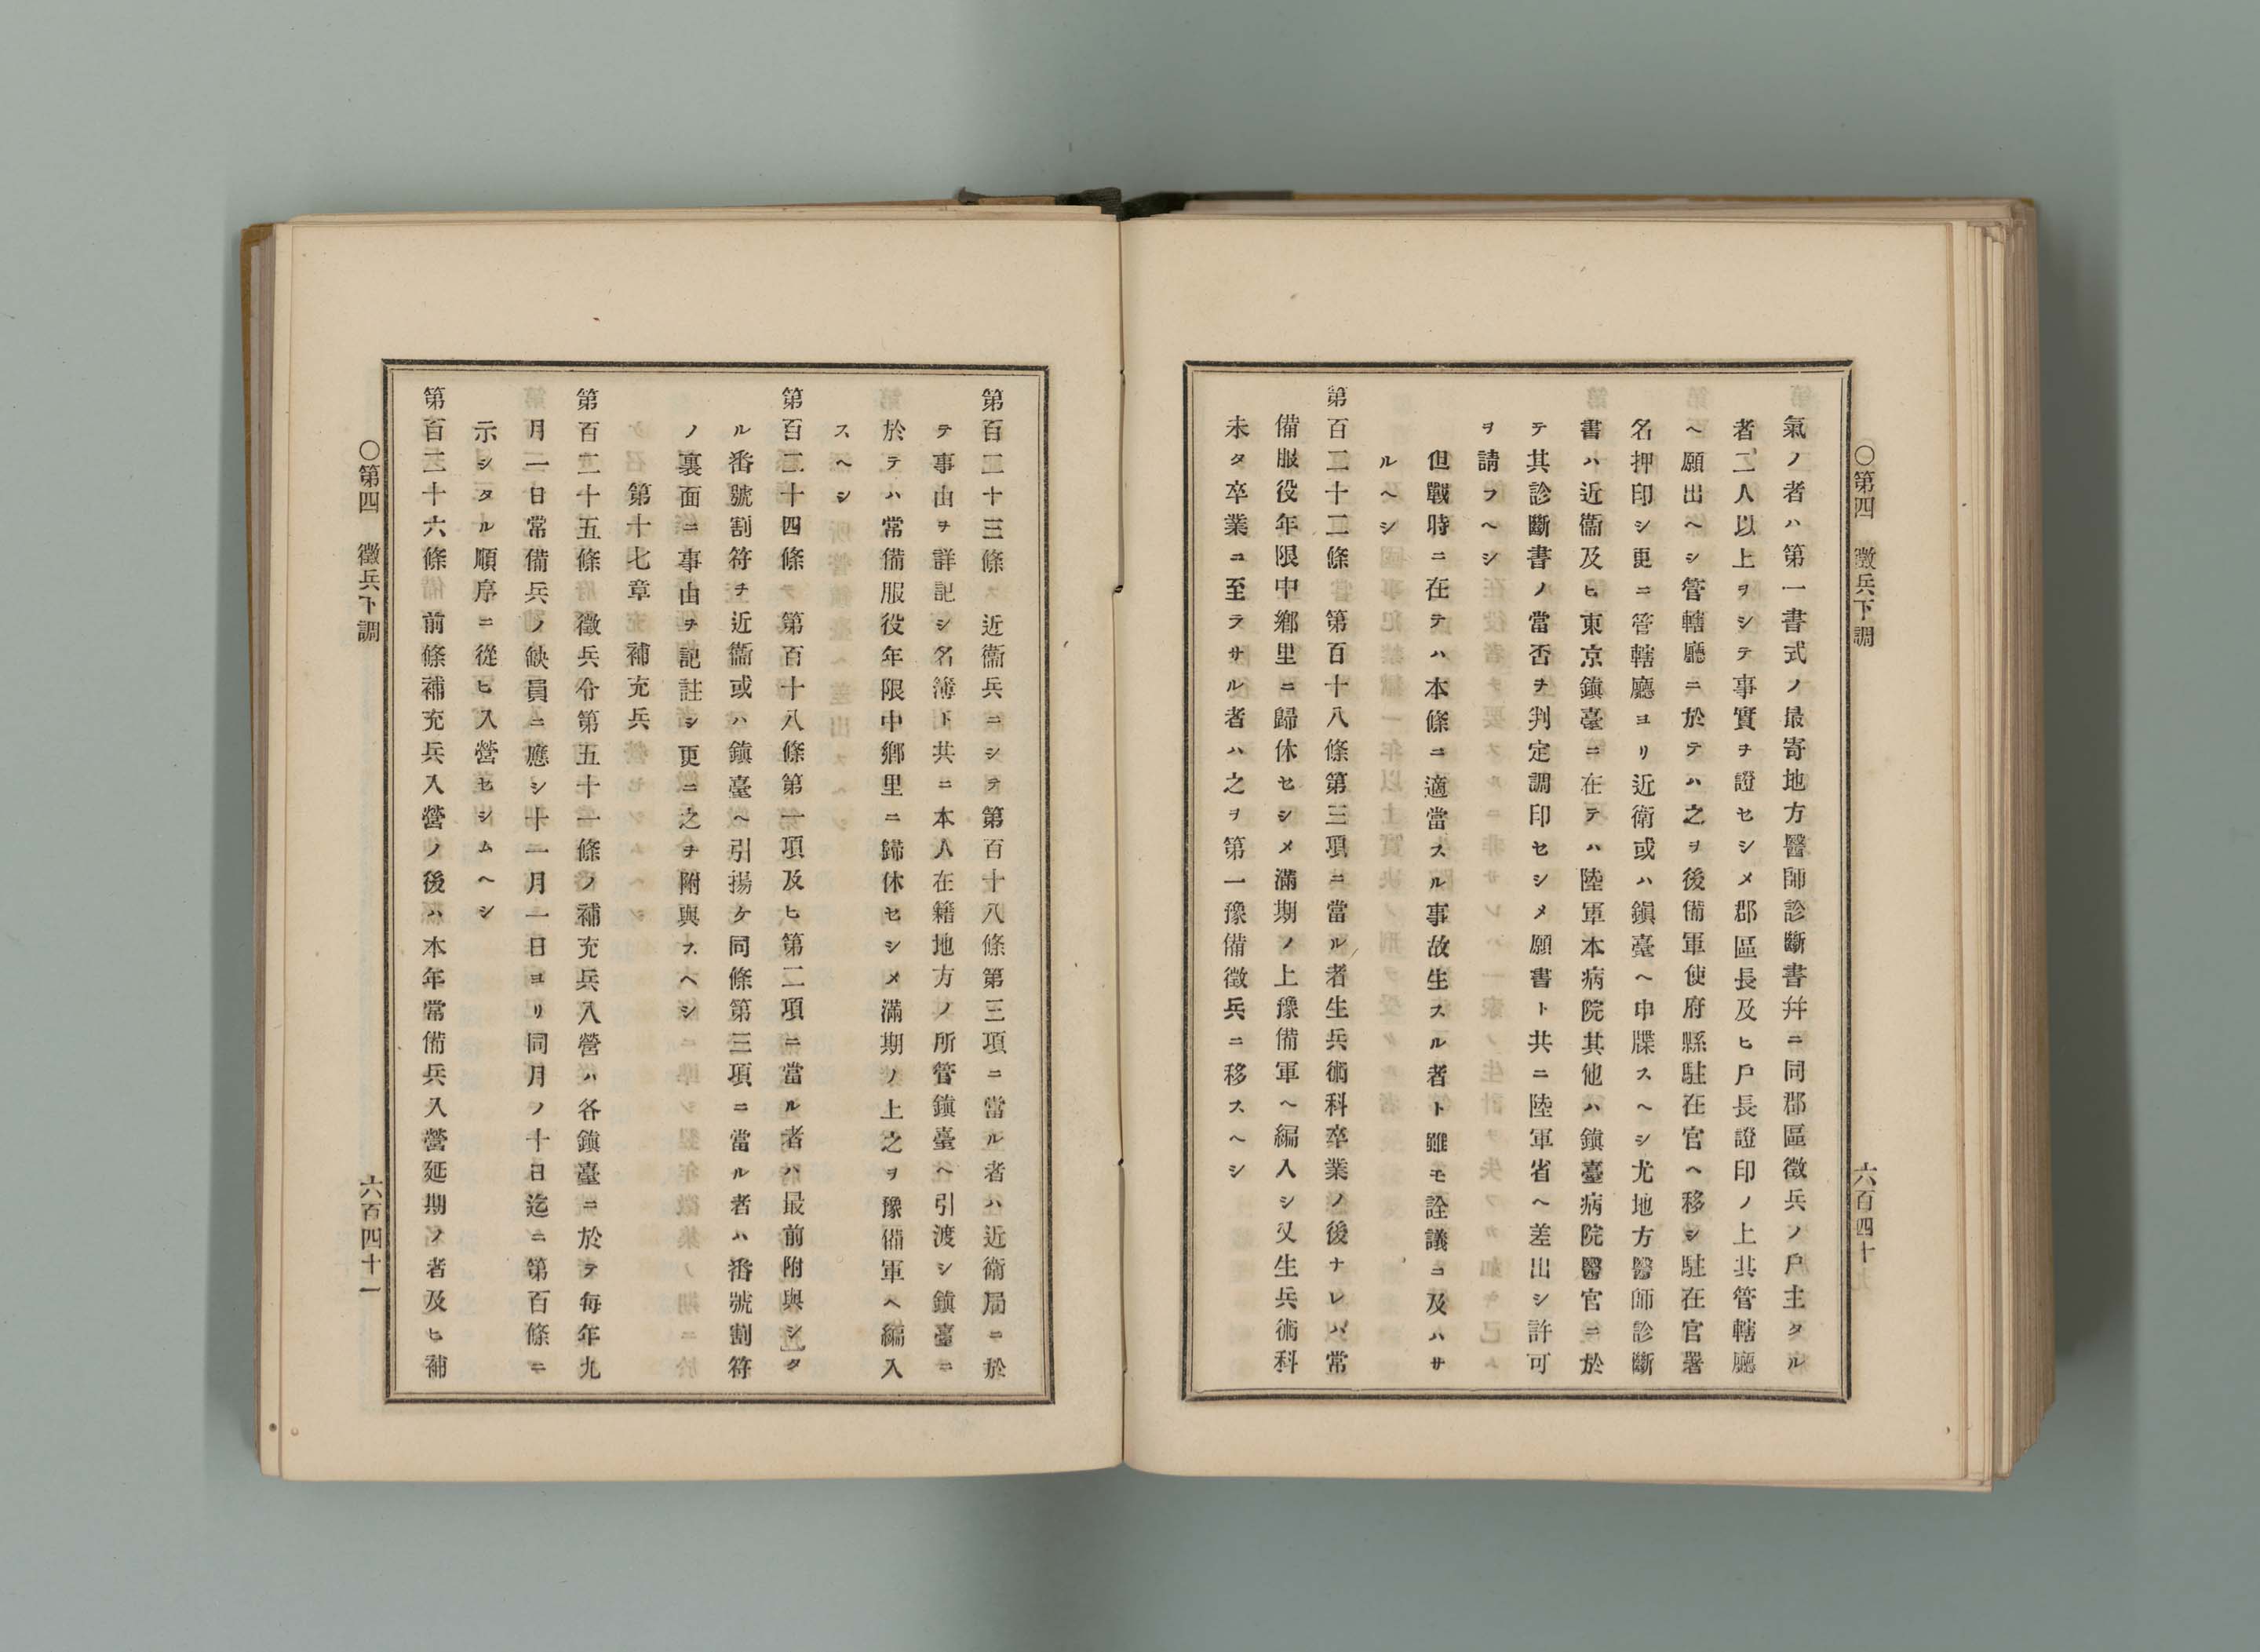 〇第四　徵兵下調
六百四十
氣ノ者ハ第一書式ノ最寄地方醫師診斷書幷ニ同郡區徵兵ノ戶主タル
者二人以上ヲシテ事實ヲ證セシメ郡區長及ヒ戶長證印ノ上其管轄廳
ヘ願出ヘシ管轄廳ニ於テハ之ヲ後備軍使府縣駐在官ヘ移シ駐在官署
名押印シ更ニ管轄廳ヨリ近衞或ハ鎭臺ヘ申牒スヘシ尤地方醫師診斷
書ハ近衞及ヒ東京鎭臺ニ在テハ陸軍本病院其他ハ鎭臺病院醫官ニ於
テ其診斷書ノ當否ヲ判定調印セシメ願書ト共ニ陸軍省ヘ差出シ許可
ヲ請フヘシ
但戰時ニ在テハ本條ニ適當スル事故生スル者ト雖モ詮議ニ及ハサ
ルヘシ
第百二十二條　第百十八條第三項ニ當ル者生兵術科卒業ノ後ナレハ常
備服役年限中鄕里ニ歸休セシメ滿期ノ上豫備軍ヘ編入シ又生兵術科
未タ卒業ニ至ラサル者ハ之ヲ第一豫備徵兵ニ移スヘシ
第百二十三條　近衞兵ニシテ第百十八條第三項ニ當ル者ハ近衞局ニ於
テ事由ヲ詳記シ名簿ト共ニ本人在籍地方ノ所管鎭臺ヘ引渡シ鎭臺ニ
於テハ常備服役年限中鄕里ニ歸休セシメ滿期ノ上之ヲ豫備軍ヘ編入
スヘシ
第百二十四條　第百十八條第一項及ヒ第二項ニ當ル者ハ最前附與シタ
ル番號割符ヲ近衞或ハ鎭臺ヘ引揚ケ同條第三項ニ當ル者ハ番號割符
ノ裏面ニ事由ヲ記註シ更ニ之ヲ附與スヘシ
第十七章　補充兵
第百二十五條　徵兵令第五十一條ノ補充兵入營ハ各鎭臺ニ於テ每年九
月一日常備兵ノ缺員ニ應シ十一月一日ヨリ同月ノ十日迄ニ第百條ニ
示シタル順序ニ從ヒ入營セシムヘシ
第百二十六條　前條補充兵入營ノ後ハ本年常備兵入營延期ノ者及ヒ補
〇第四　徵兵下調
六百四十一